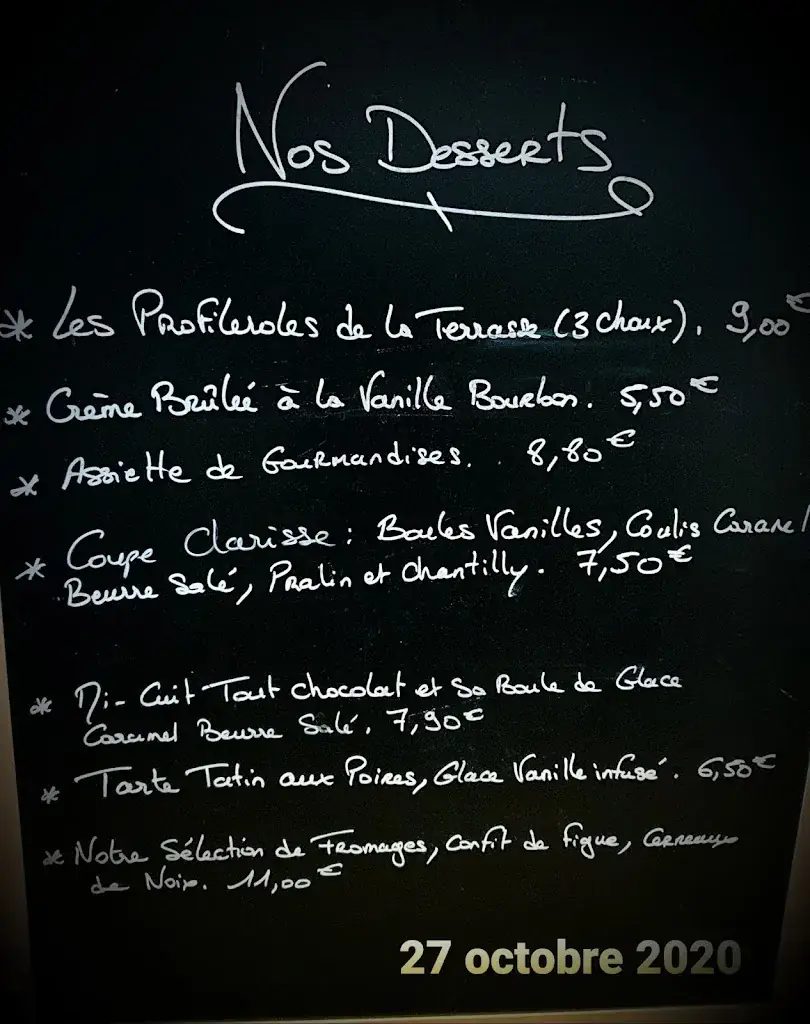 Nos Desserts
* Les Profiteroles de la Terrasse (3 choux). 9,00€
* Crème Brûlée à la Vanille Bourbon. 5,50€
* Assiette de Gourmandises. . 8,80€
* Coupe Clarisse : Boules Vanilles, Coulis Caramel
Beurre Salé, Pralin et Chantilly. 7,50€
* Mi-Cuit Tout chocolat et Sa Boule de Glace
Caramel Beurre Salé. 7,90€
* Tarte Tatin aux Poires, Glace Vanille infusé. 6,50€
* Notre Sélection de Fromages, Confit de figue, Cerneaux
de Noix. 11,00€
27 octobre 2020